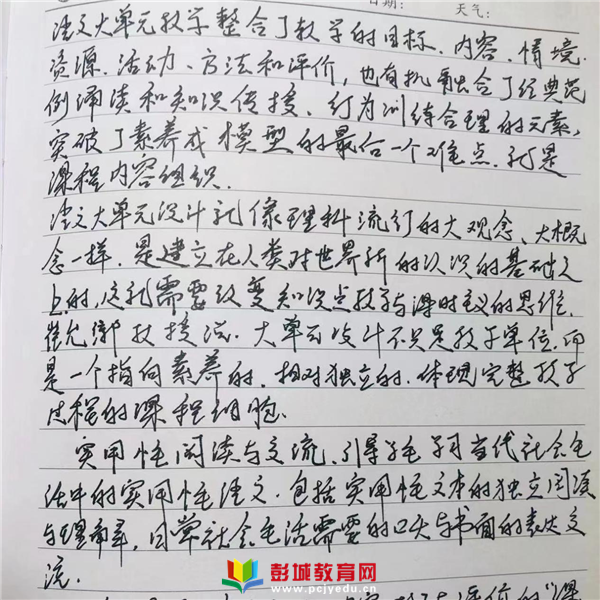 日期： 天气：
语文大单元教学整合了教学的目标、内容、情境、
资源、活动、方法和评价，也有机融合了经典范
例诵读和知识传授、行为训练合理的元素，
突破了素养成模型的最后一个难点，就是
课程内容组织．
语文大单元设计就像理科流行的大观念、大概
念一样，是建立在人类对世界新的认识的基础之
上的，这就需要改变知识点教学与课时主义的思维．
崔允漷教授接说．大单元设计不只是教学单位，而
是一个指向素养的、相对独立的、体现完整教学
过程的课程细胞．
实用性阅读与交流，引导学生学习当代社会生
活中的实用性语文，包括实用性文本的独立阅读
与理解，日常社会生活需要的口头与书面的表达交
流．
彭城教育网
www.pcjyedu.cn